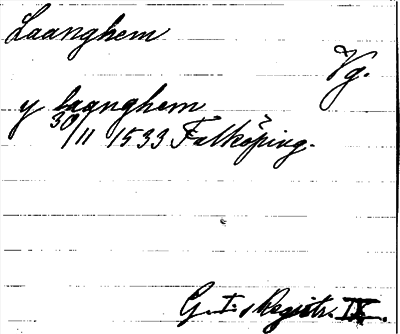 Laanghem
Vg.
y laanghem
30/11 1533 Falköping.
G. I:s Registr. IX.